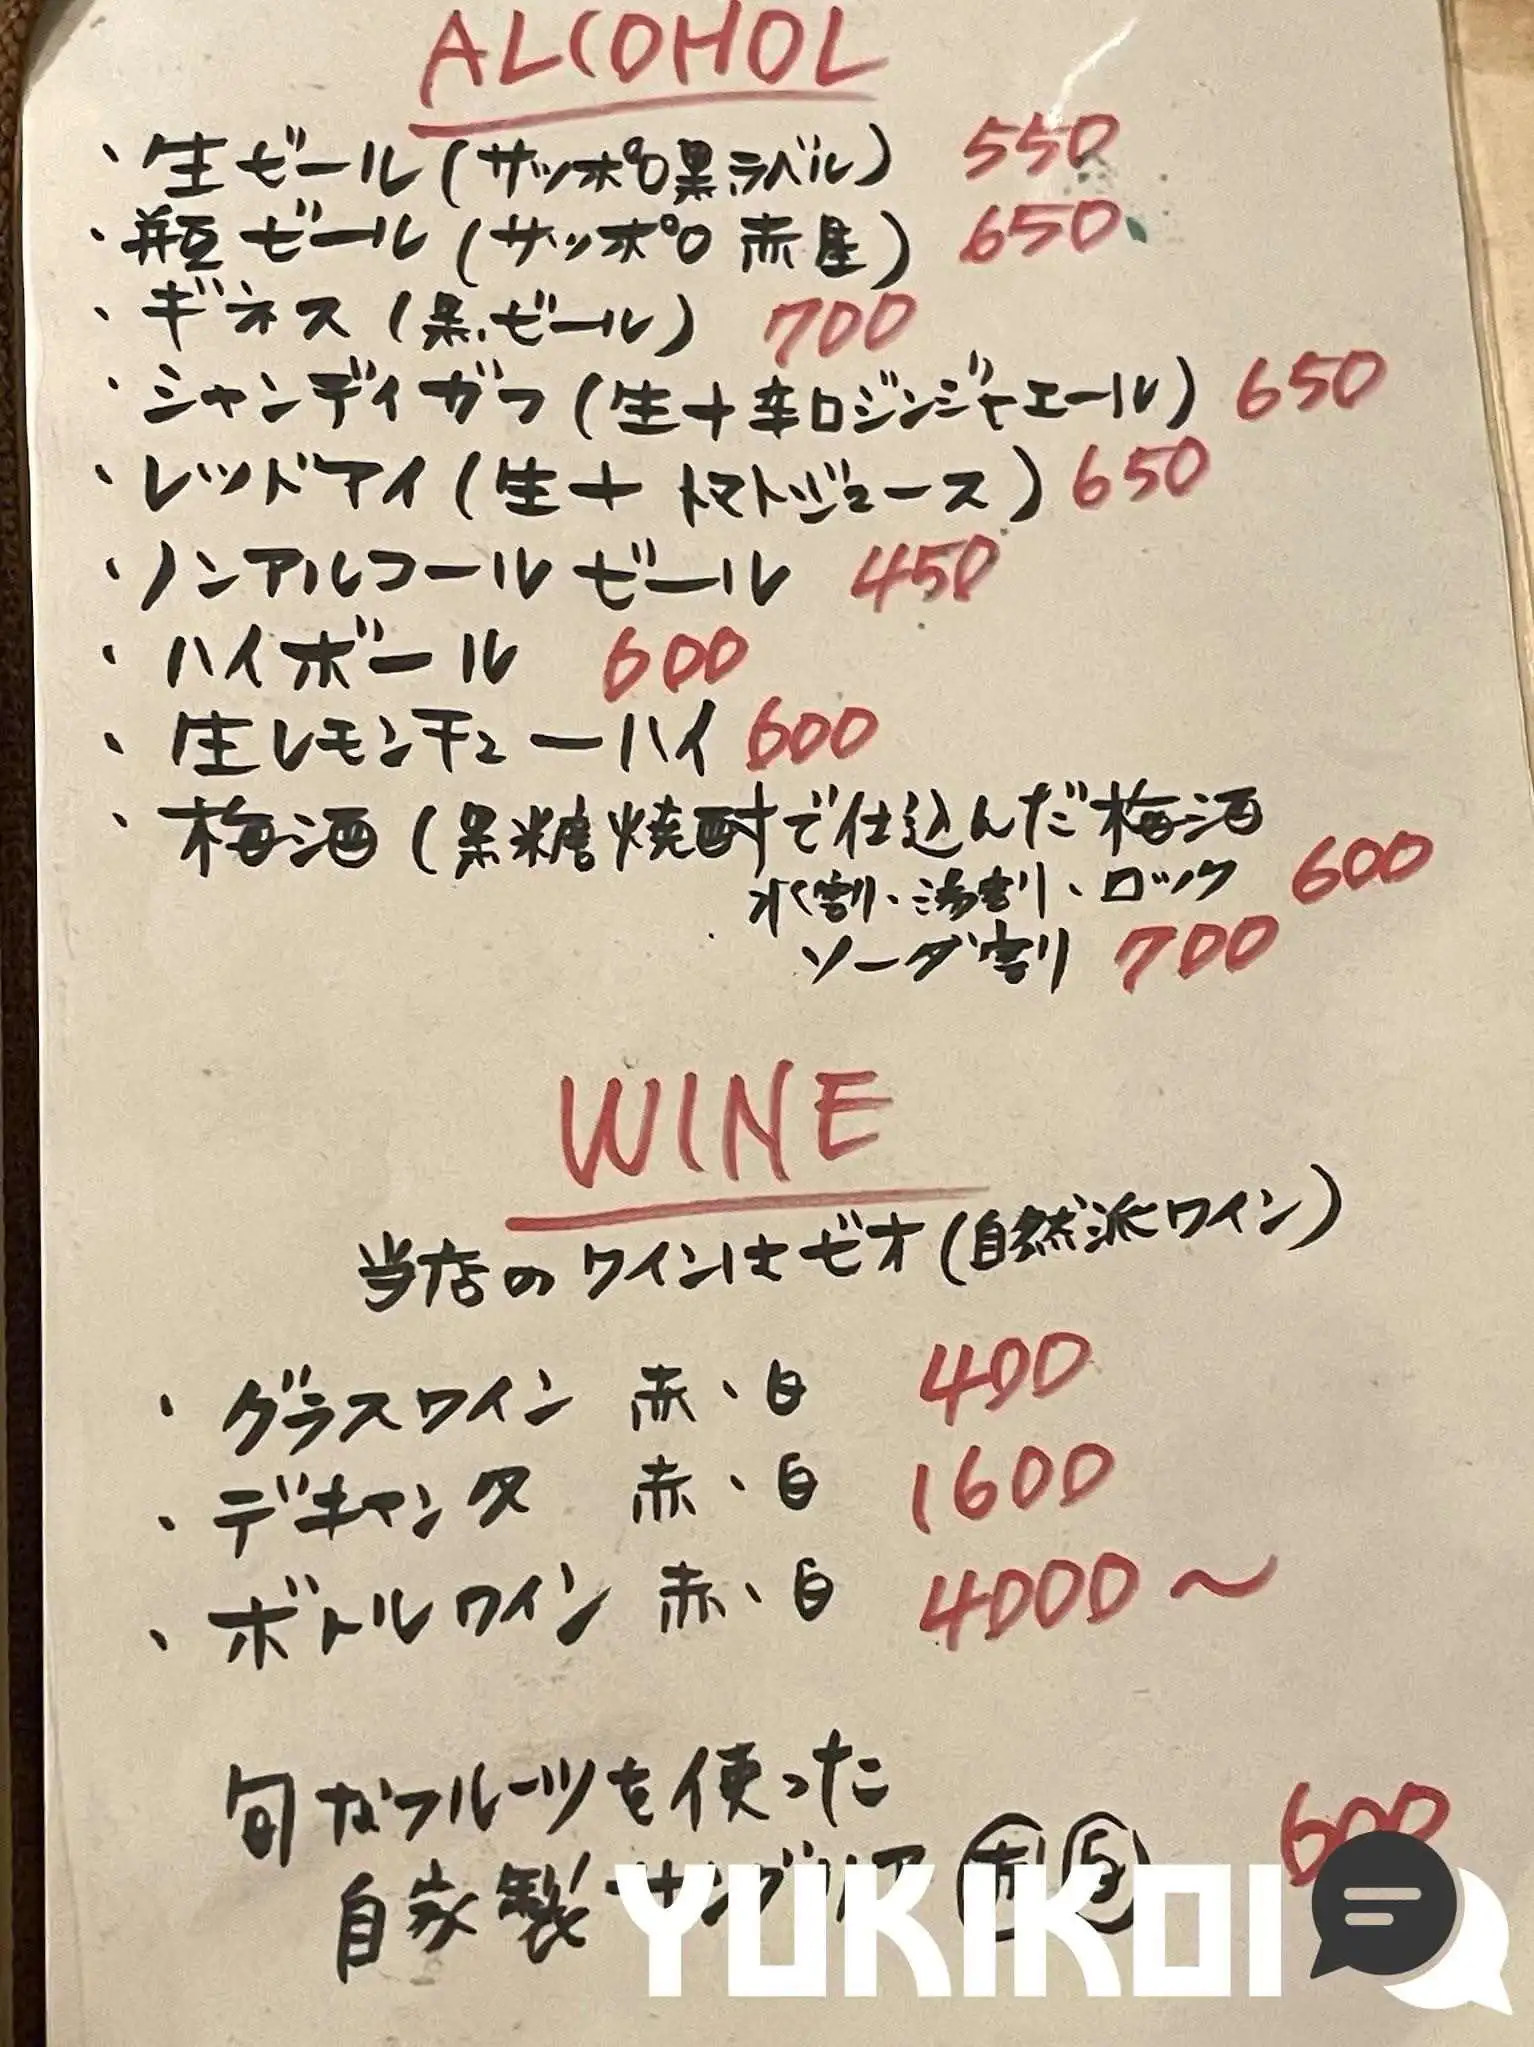 ALCOHOL
・生ビール(サッポロ黒ラベル) 550
・瓶ビール(サッポロ 赤星) 650
・ギネス(黒ビール) 700
・シャンディガフ(生+辛口ジンジャエール) 650
・レッドアイ(生+トマトジュース) 650
・ノンアルコールビール 450
・ハイボール 600
・生レモンチューハイ 600
・梅酒(黒糖焼酎で仕込んだ梅酒
水割・湯割り・ロック 600
ソーダ割り 700
WINE
当店のワインはビオ(自然派ワイン)
・グラスワイン 赤・白 400
・デキャンタ 赤・白 1600
・ボトルワイン 赤・白 4000〜
旬なフルーツを使った
自家製サングリア 赤 600
YUKIKOI